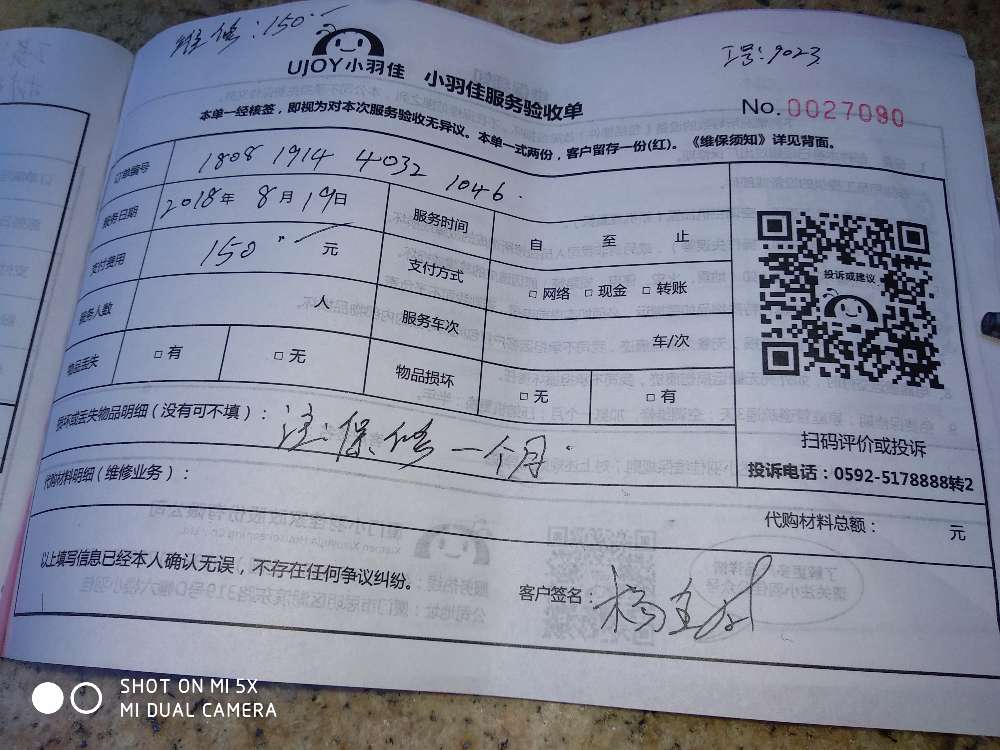 维修:150.
工号:9023
UJOY小羽佳 小羽佳服务验收单
No.0027090
本单一经核签，即视为对本次服务验收无异议。本单一式两份，客户留存一份(红)。《维保须知》详见背面。
订单编号 1808 1914 4032 1046.
服务日期 2018年 8月19日 服务时间 自 至 止
支付费用 150 元 支付方式 □ 网络 □ 现金 □ 转账
服务人数 人 服务车次 车/次
物品丢失 □ 有 □ 无 物品损坏 □ 无 □ 有
投诉或建议
扫码评价或投诉
投诉电话：0592-5178888转2
损坏或丢失物品明细（没有可不填）： 注:保修一个月.
代购材料明细（维修业务）：
代购材料总额： 元
以上填写信息已经本人确认无误，不存在任何争议纠纷。
客户签名：杨
SHOT ON MI 5X
MI DUAL CAMERA